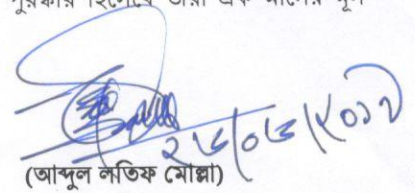 পুরস্কার হিসেবে তারা এক মাসের মূল
২৬/০৬/২০১৭
(আব্দুল লতিফ মোল্লা)